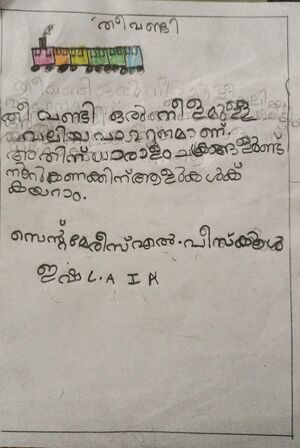 തീവണ്ടി
തീ വണ്ടി ഒരു നീളമുള്ള
വലിയ വാഹനമാണ്.
അതിന് ധാരാളം ചക്രങ്ങളുണ്ട്
നൂറുകണക്കിന് ആളുകൾക്ക്
കയറാം.
സെന്റ് മേരീസ് എൽ.പി സ്കൂൾ
ഇഷ L.A I A